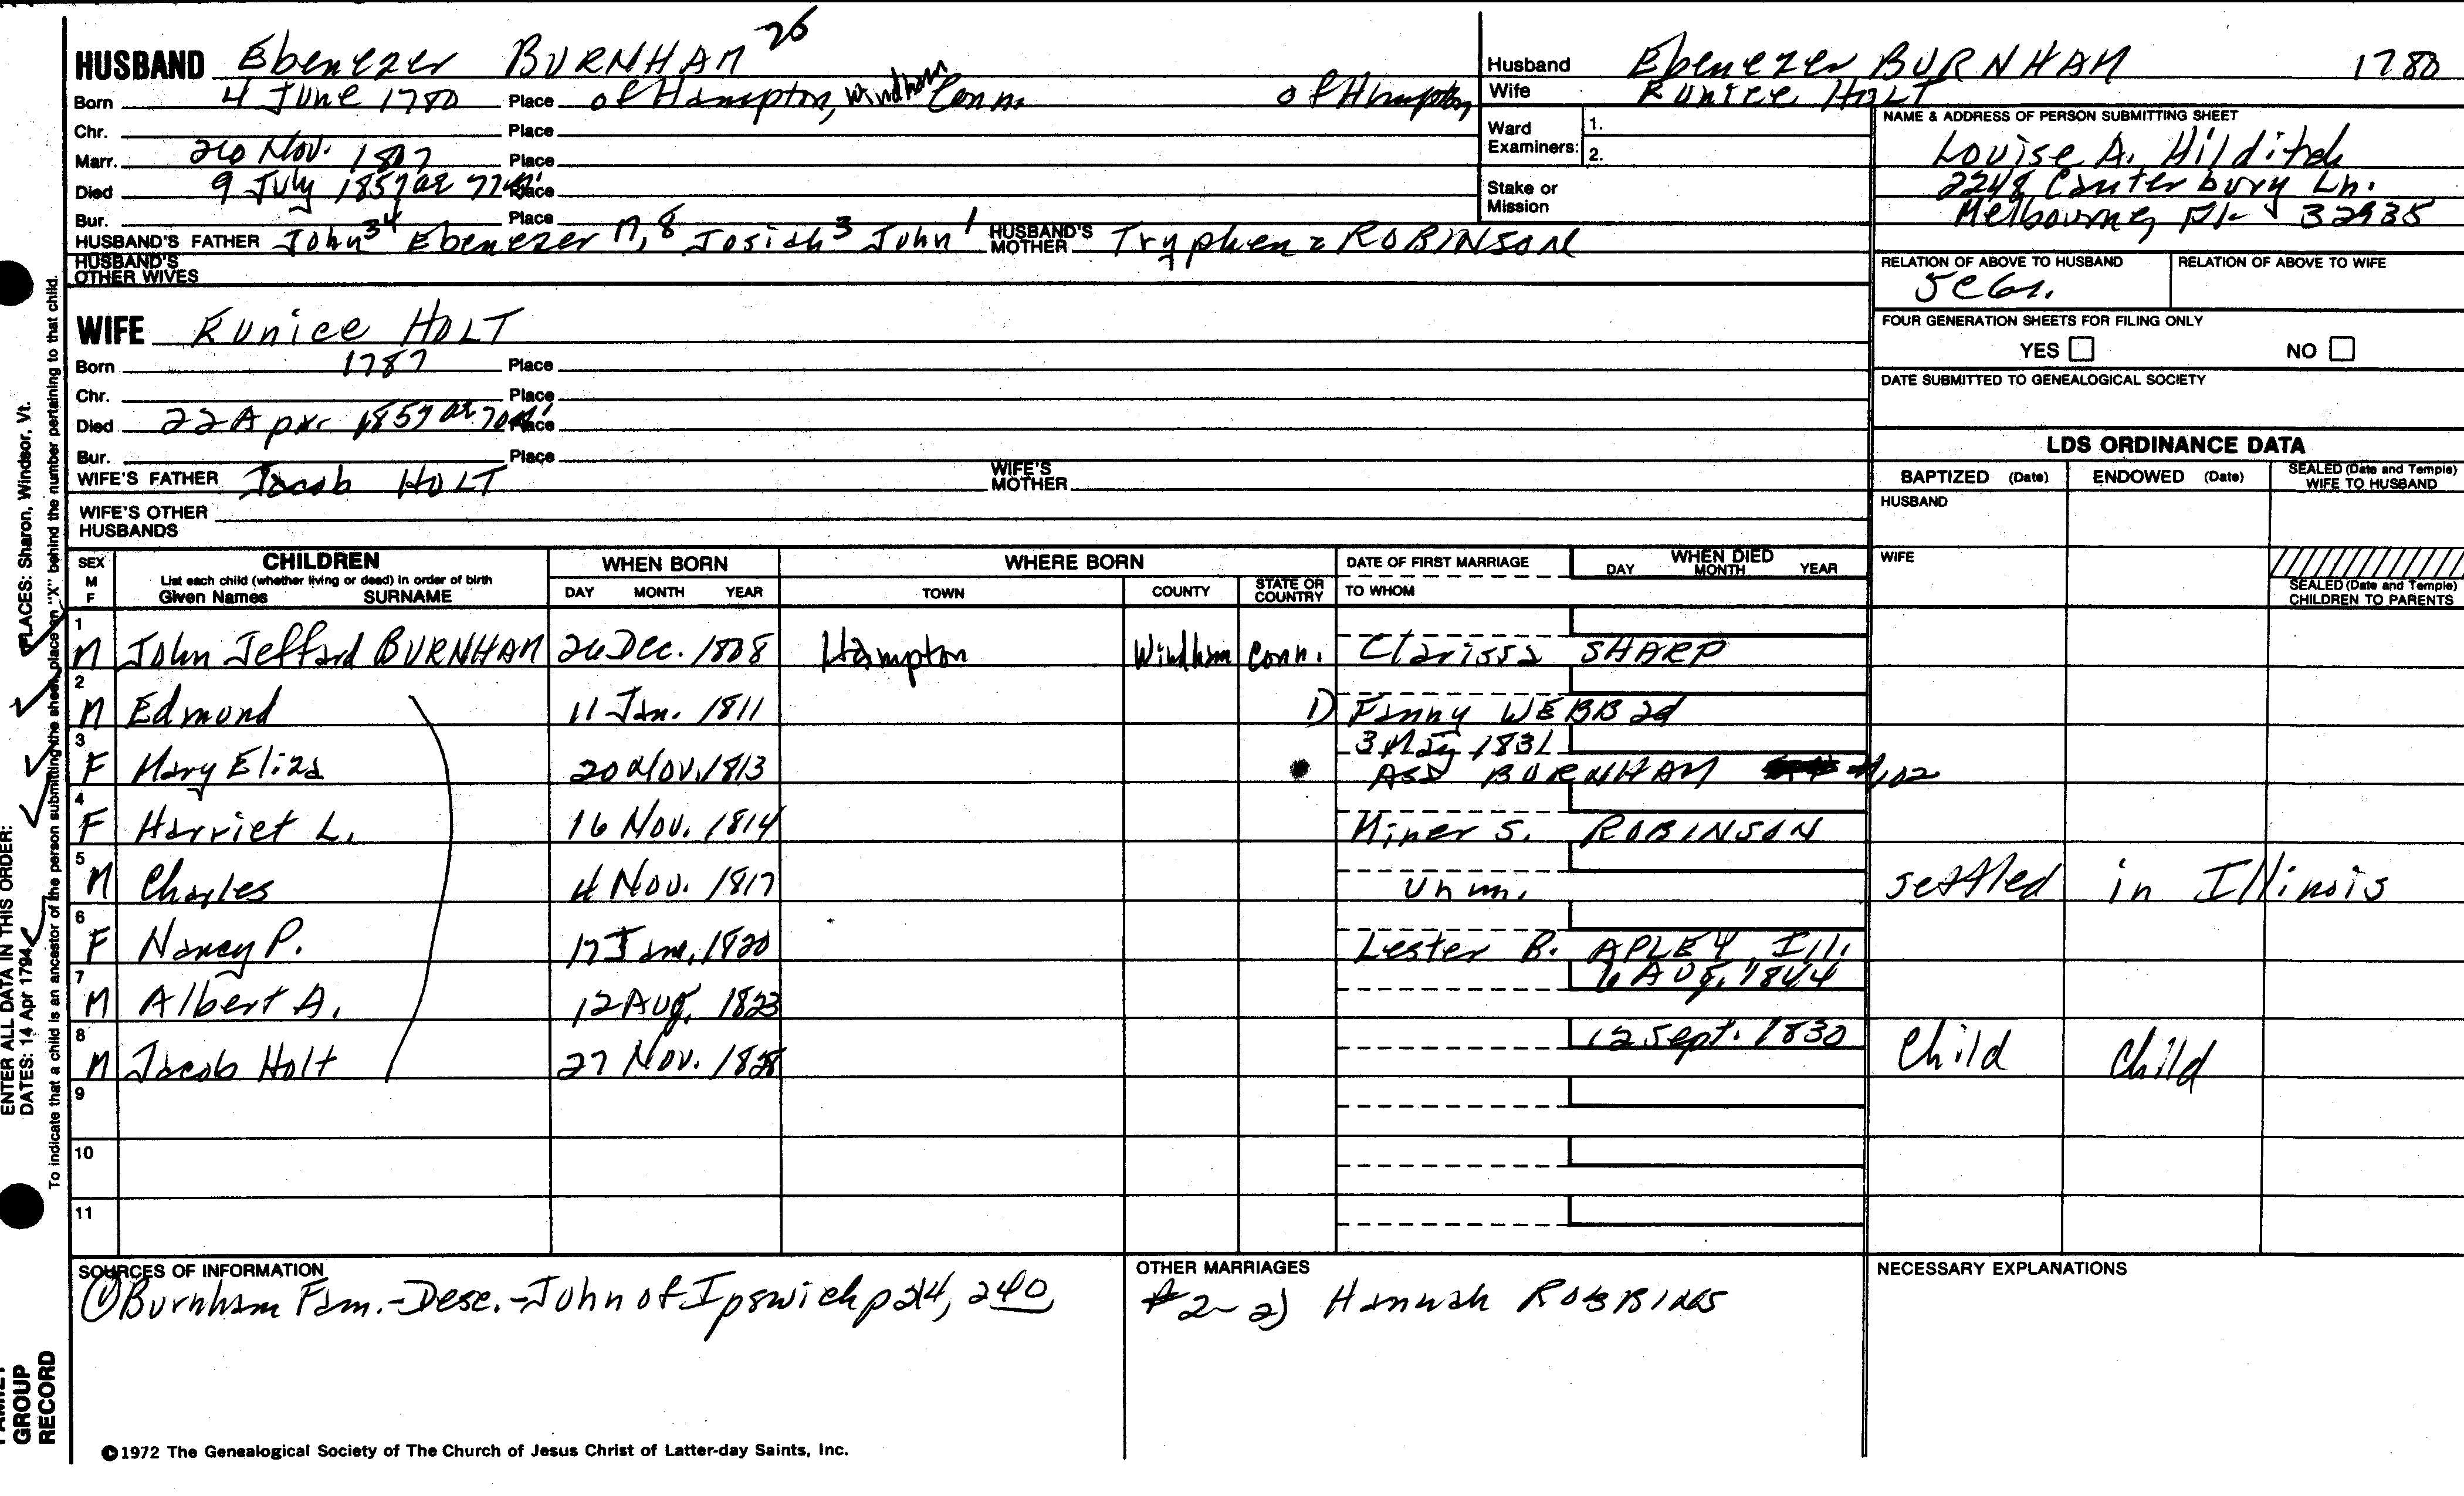 HUSBAND Ebenezer BURNHAM 26
Born 4 June 1780 Place of Hampton, Windham Conn. of Hampton,
Chr. Place
Marr. 26 Nov. 1807 Place
Died 9 July 1857 ae 77 Place
Bur. Place
HUSBAND'S FATHER John 34 Ebenezer 8 Josiah 3 John 1 HUSBAND'S MOTHER Tryphena ROBINSON
HUSBAND'S OTHER WIVES
Husband Ebenezer BURNHAM 1780
Wife Eunice HOLT
Ward Examiners: 1.
2.
Stake or Mission
NAME & ADDRESS OF PERSON SUBMITTING SHEET
Louise A. Hilditch
2248 Canterbury Ln.
Melbourne, Fl 32935
RELATION OF ABOVE TO HUSBAND RELATION OF ABOVE TO WIFE
FOUR GENERATION SHEETS FOR FILING ONLY
YES NO
DATE SUBMITTED TO GENEALOGICAL SOCIETY
WIFE Eunice HOLT
Born 1787 Place
Chr. Place
Died 22 Apr. 1857 ae. 70 Place
Bur. Place
WIFE'S FATHER Jacob HOLT WIFE'S MOTHER
WIFE'S OTHER HUSBANDS
LDS ORDINANCE DATA
BAPTIZED (Date) ENDOWED (Date) SEALED (Date and Temple) WIFE TO HUSBAND
HUSBAND
WIFE
SEALED (Date and Temple) CHILDREN TO PARENTS
SEX M F CHILDREN WHEN BORN WHERE BORN DATE OF FIRST MARRIAGE WHEN DIED
List each child (whether living or dead) in order of birth
Given Names SURNAME DAY MONTH YEAR TOWN COUNTY STATE OR COUNTRY TO WHOM DAY MONTH YEAR
1 M John Jefford BURNHAM 26 Dec. 1808 Hampton Windham Conn. Clarissa SHARP
2 M Edmond 11 Jan. 1811 1) Fanny WEBB 2d
3 May 1831
3 F Mary Eliza 20 Nov. 1813 Asa BURNHAM
4 F Harriet L. 16 Nov. 1814 Miner S. ROBINSON
5 M Charles 4 Nov. 1817 unm. settled in Illinois
6 F Nancy P. 17 Jan. 1820 Lester B. APLEY, Ill.
6 Aug. 1844
7 M Albert A. 12 Aug. 1823
12 Sept. 1830
8 M Jacob Holt 27 Nov. 1828 Child Child
9
10
11
SOURCES OF INFORMATION
① Burnham Fam.-Desc.-John of Ipswich p 214, 240
OTHER MARRIAGES
#2- 2) Hannah ROBBINS
NECESSARY EXPLANATIONS
©1972 The Genealogical Society of The Church of Jesus Christ of Latter-day Saints, Inc.
ENTER ALL DATA IN THIS ORDER:
DATES: 14 Apr 1794
PLACES: Sharon, Windsor, Vt.
To indicate that a child is an ancestor of the person submitting the sheet, place an "X" behind the number pertaining to that child.
FAMILY GROUP RECORD